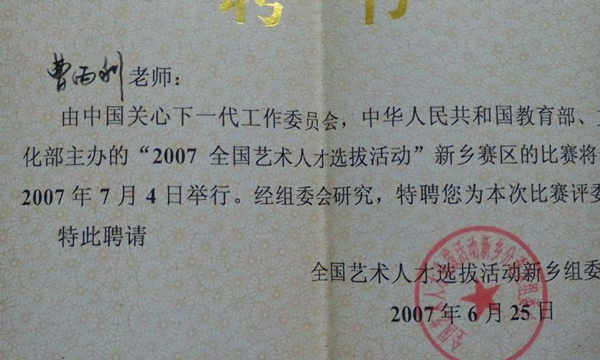 聘书
曹雨利老师：
由中国关心下一代工作委员会，中华人民共和国教育部、
化部主办的“2007 全国艺术人才选拔活动”新乡赛区的比赛将
2007 年 7 月 4 日举行。经组委会研究，特聘您为本次比赛评委
特此聘请
全国艺术人才选拔活动新乡组委
2007 年 6 月 25 日